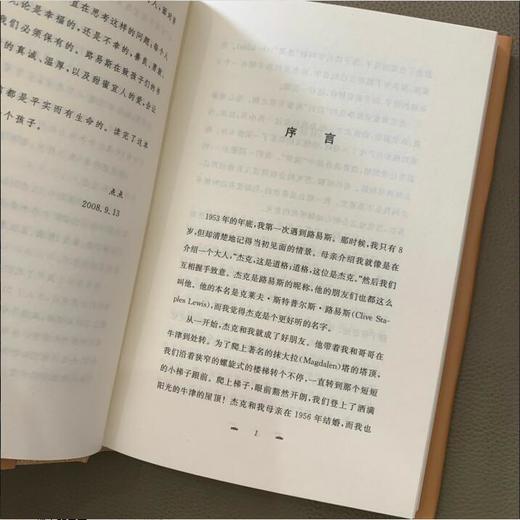 直在思考这样的问题：每个人
无论是幸福的，还是不幸的，
我们必须保有的。路易斯在致孩子们的书
的真诚、温厚，以及甜蜜宜人的爱，会让
都是平实而有生命的。读完了这本
个孩子。
点点
2008.9.13
序言
1953年的年底，我第一次遇到路易斯。那时候，我只有8
岁，但却清楚地记得当初见面的情景。母亲介绍我就像是在
介绍一个大人，“杰克，这是道格；道格，这位是杰克。”然后我们
互相握手致意。杰克是路易斯的昵称，他的朋友们也都这么
叫他。他的本名是克莱夫·斯特普尔斯·路易斯(Clive Sta-
ples Lewis)，而我觉得杰克是个更好听的名字。
从一开始，杰克和我就成了好朋友。他带着我和哥哥在
牛津到处转。为了爬上著名的抹大拉(Magdalen)塔的塔顶，
我们沿着狭窄的螺旋式的楼梯转个不停，一直转到那个短短
的小梯子跟前。爬上梯子，眼前豁然开朗，我们登上了洒满
阳光的牛津的屋顶！杰克和我母亲在1956年结婚，而我也
1